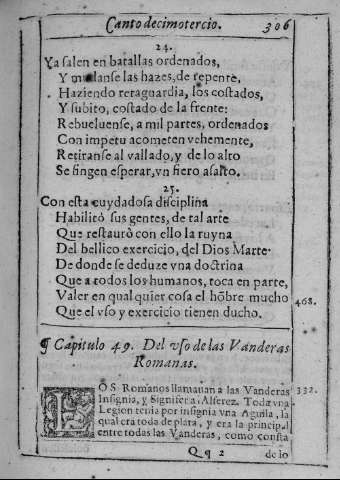 Canto decimotercio. 306
24.
Ya salen en batallas ordenados,
Y mudanse las hazes, de repente,
Haziendo retaguardia, los costados,
Y subito, costado de la frente:
Rebueluense, a mil partes, ordenados
Con impetu acometen vehemente,
Retiranse al vallado, y de lo alto
Se fingen esperar, vn fiero asalto.
25.
Con esta cuydadosa disciplina
Habilitò sus gentes, de tal arte
Que restaurò con ello la ruyna
Del bellico exercicio, del Dios Marte
De donde se deduze vna doctrina
Que a todos los humanos, toca en parte,
Valer en qualquier cosa el hōbre mucho
468.
Que el vso y exercicio tienen ducho.
¶ Capitulo 49. Del vso de las Vanderas
Romanas.
LOS Romanos llamauan a las Vanderas 332.
Insignia, y Signifera, Alferez. Toda vna
Legion tenia por insignia vna Aguila, la
qual era toda de plata, y era la principal
entre todas las Vanderas, como consta
Qq 2 de lo